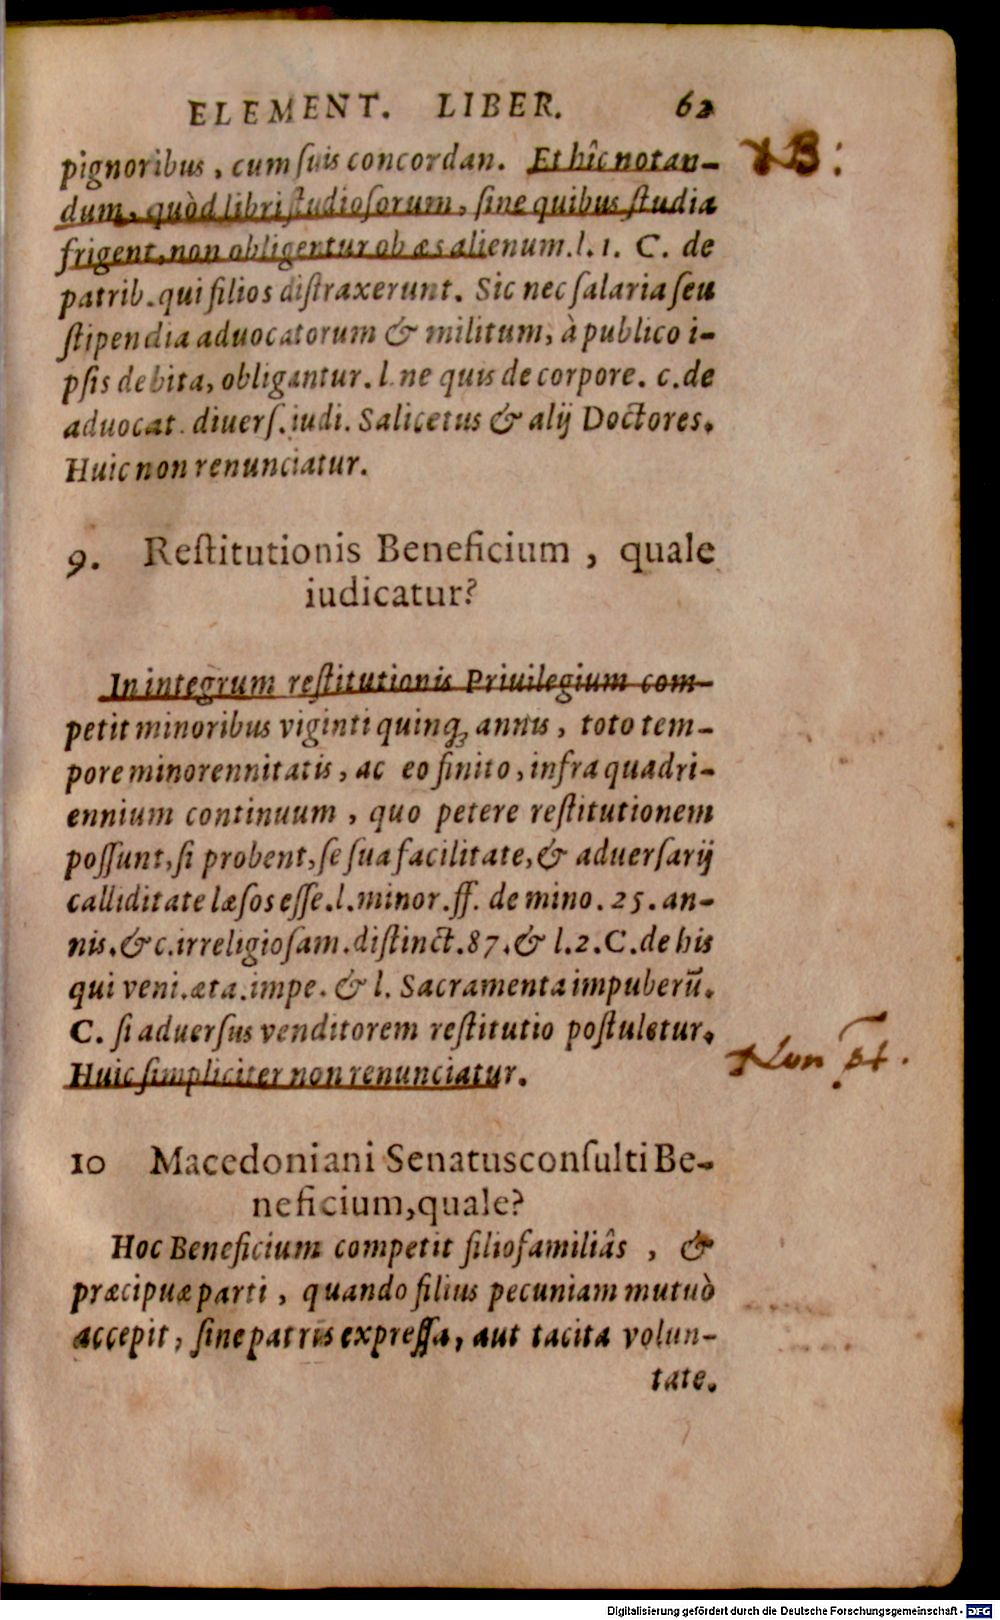 ELEMENT. LIBER. 62
pignoribus, cum suis concordan. Et hîc notan-
dum, quòd libri studiosorum, sine quibus studia
frigent, non obligentur ob æs alienum. l. 1. C. de
patrib. qui filios distraxerunt. Sic nec salaria seu
stipendia aduocatorum & militum, à publico i-
psis debita, obligantur. l. ne quis de corpore. c. de
aduocat. diuers. iudi. Salicetus & alij Doctores.
Huic non renunciatur.
NB:
9. Restitutionis Beneficium, quale
iudicatur?
In integrum restitutionis Priuilegium com-
petit minoribus viginti quinq; annis, toto tem-
pore minorennitatis, ac eo finito, infra quadri-
ennium continuum, quo petere restitutionem
possunt, si probent, se sua facilitate, & aduersarij
calliditate læsos esse. l. minor. ff. de mino. 25. an-
nis. & c. irreligiosam. distinct. 87. & l. 2. C. de his
qui veni. æta. impe. & l. Sacramenta impuberū.
C. si aduersus venditorem restitutio postuletur.
Huic simpliciter non renunciatur.
Non
10 Macedoniani Senatusconsulti Be-
neficium, quale?
Hoc Beneficium competit filiofamiliâs, &
præcipuæ parti, quando filius pecuniam mutuò
accepit, sine patris expressa, aut tacita volun-
tate.
Digitalisierung gefördert durch die Deutsche Forschungsgemeinschaft - DFG